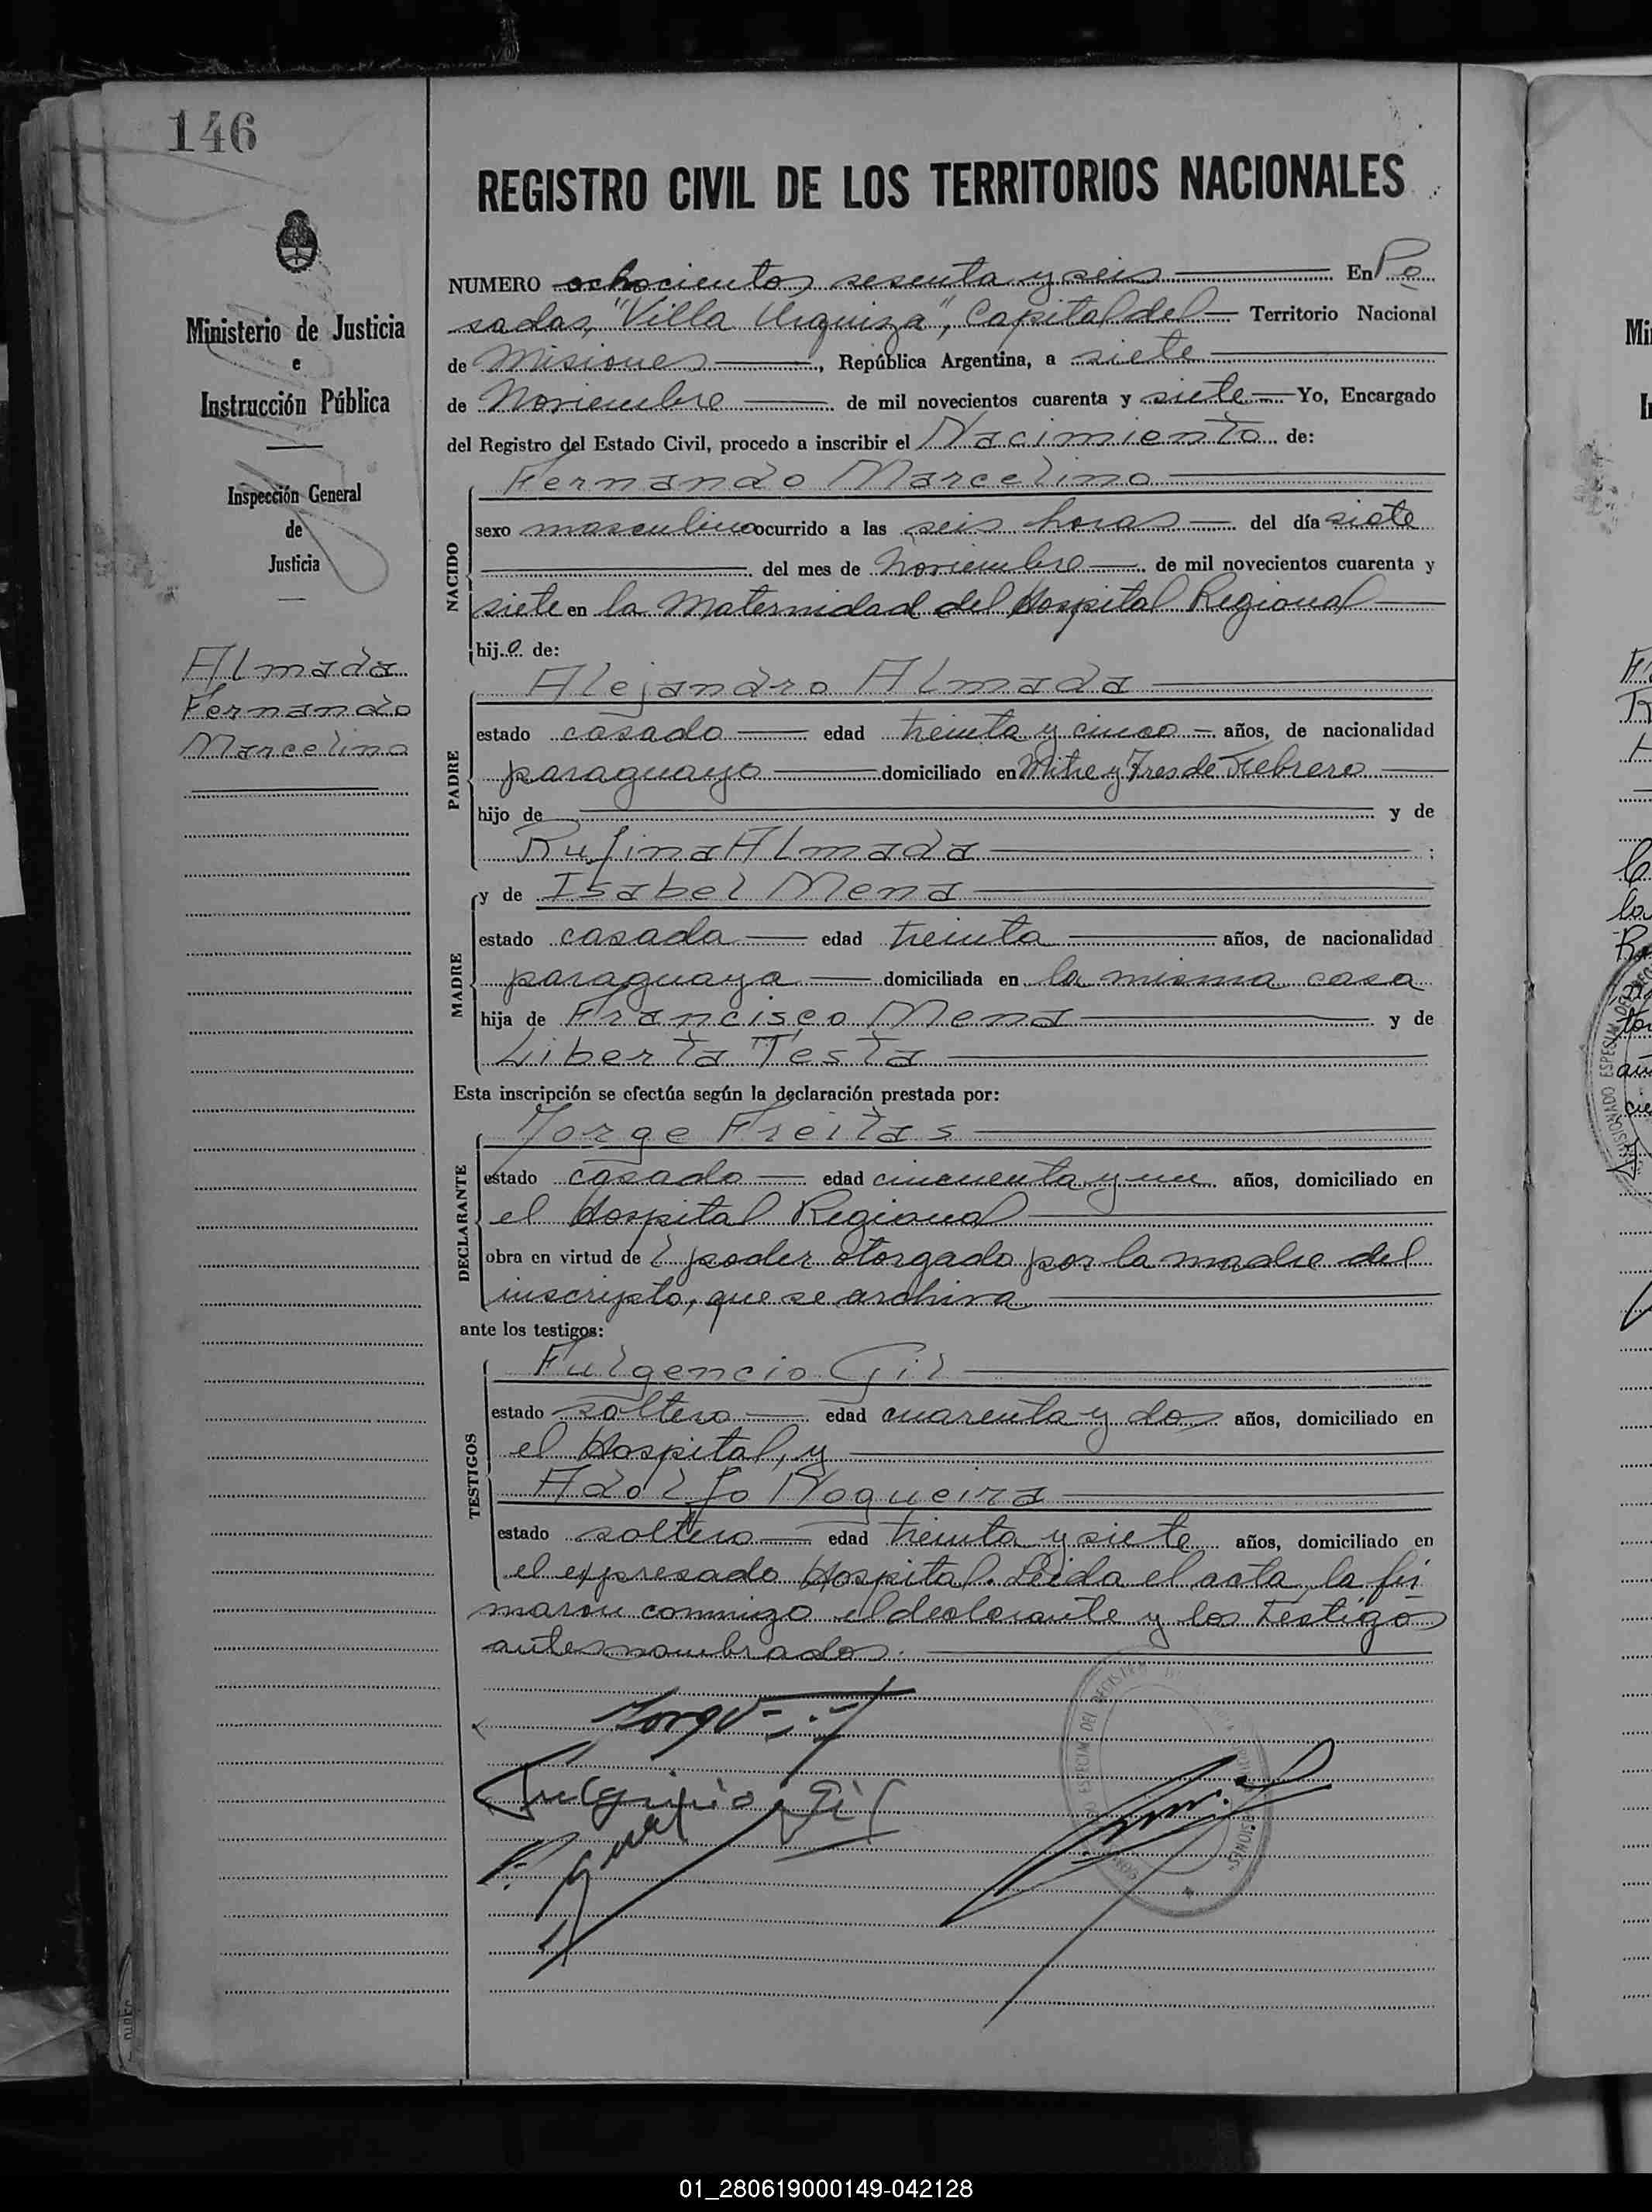 146
REGISTRO CIVIL DE LOS TERRITORIOS NACIONALES
Ministerio de Justicia
e
Instrucción Pública
Inspección General
de
Justicia
Almada
Fernando
Marcelino
NUMERO ochocientos sesenta y seis En Po
sadas, "Villa Urquiza", Capital del Territorio Nacional
de Misiones, República Argentina, a siete
de Noviembre de mil novecientos cuarenta y siete Yo, Encargado
del Registro del Estado Civil, procedo a inscribir el Nacimiento de:
NACIDO
Fernando Marcelino
sexo masculino ocurrido a las seis horas del día siete
del mes de Noviembre de mil novecientos cuarenta y
siete en la Maternidad del Hospital Regional
hijo de:
PADRE
Alejandro Almada
estado casado edad treinta y cinco años, de nacionalidad
paraguayo domiciliado en Mitre y Tres de Febrero
hijo de y de
Rufina Almada ;
MADRE
y de Isabel Mena
estado casada edad treinta años, de nacionalidad
paraguaya domiciliada en la misma casa
hija de Francisco Mena y de
Liberta Testa
Esta inscripción se efectúa según la declaración prestada por:
DECLARANTE
Jorge Freitas
estado casado edad cincuenta y un años, domiciliado en
el Hospital Regional
obra en virtud del poder otorgado por la madre del
inscripto, que se archiva
ante los testigos:
TESTIGOS
Fulgencio Gil
estado soltero edad cuarenta y dos años, domiciliado en
el Hospital, y
Adolfo Nogueira
estado soltero edad treinta y siete años, domiciliado en
el expresado Hospital. Leida el acta, la fir
maron conmigo el declarante y los testigos
antes nombrados.
Fulgencio Gil
01_280619000149-042128